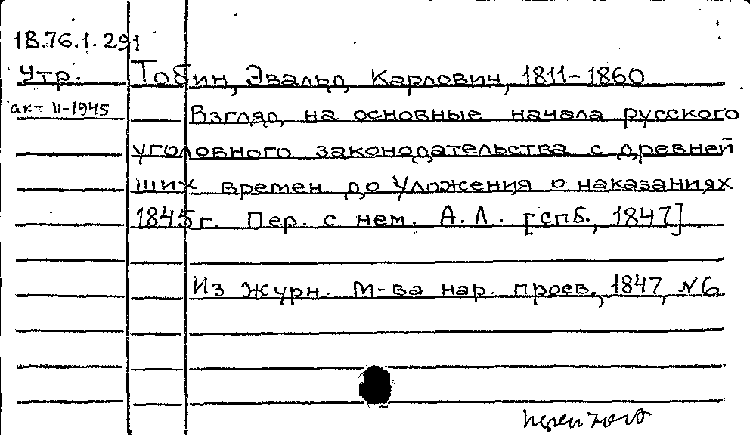 18.76.1.291
Утр. Тобин, Эвальд Карлович, 1811-1860
акт II-1945 Взгляд на основные начала русского
уголовного законодательства с древней
ших времен до Уложения о наказаниях
1845 г. Пер. с нем. А.Л. [спб., 1847]
Из журн. М-ва нар. просв., 1847, №6